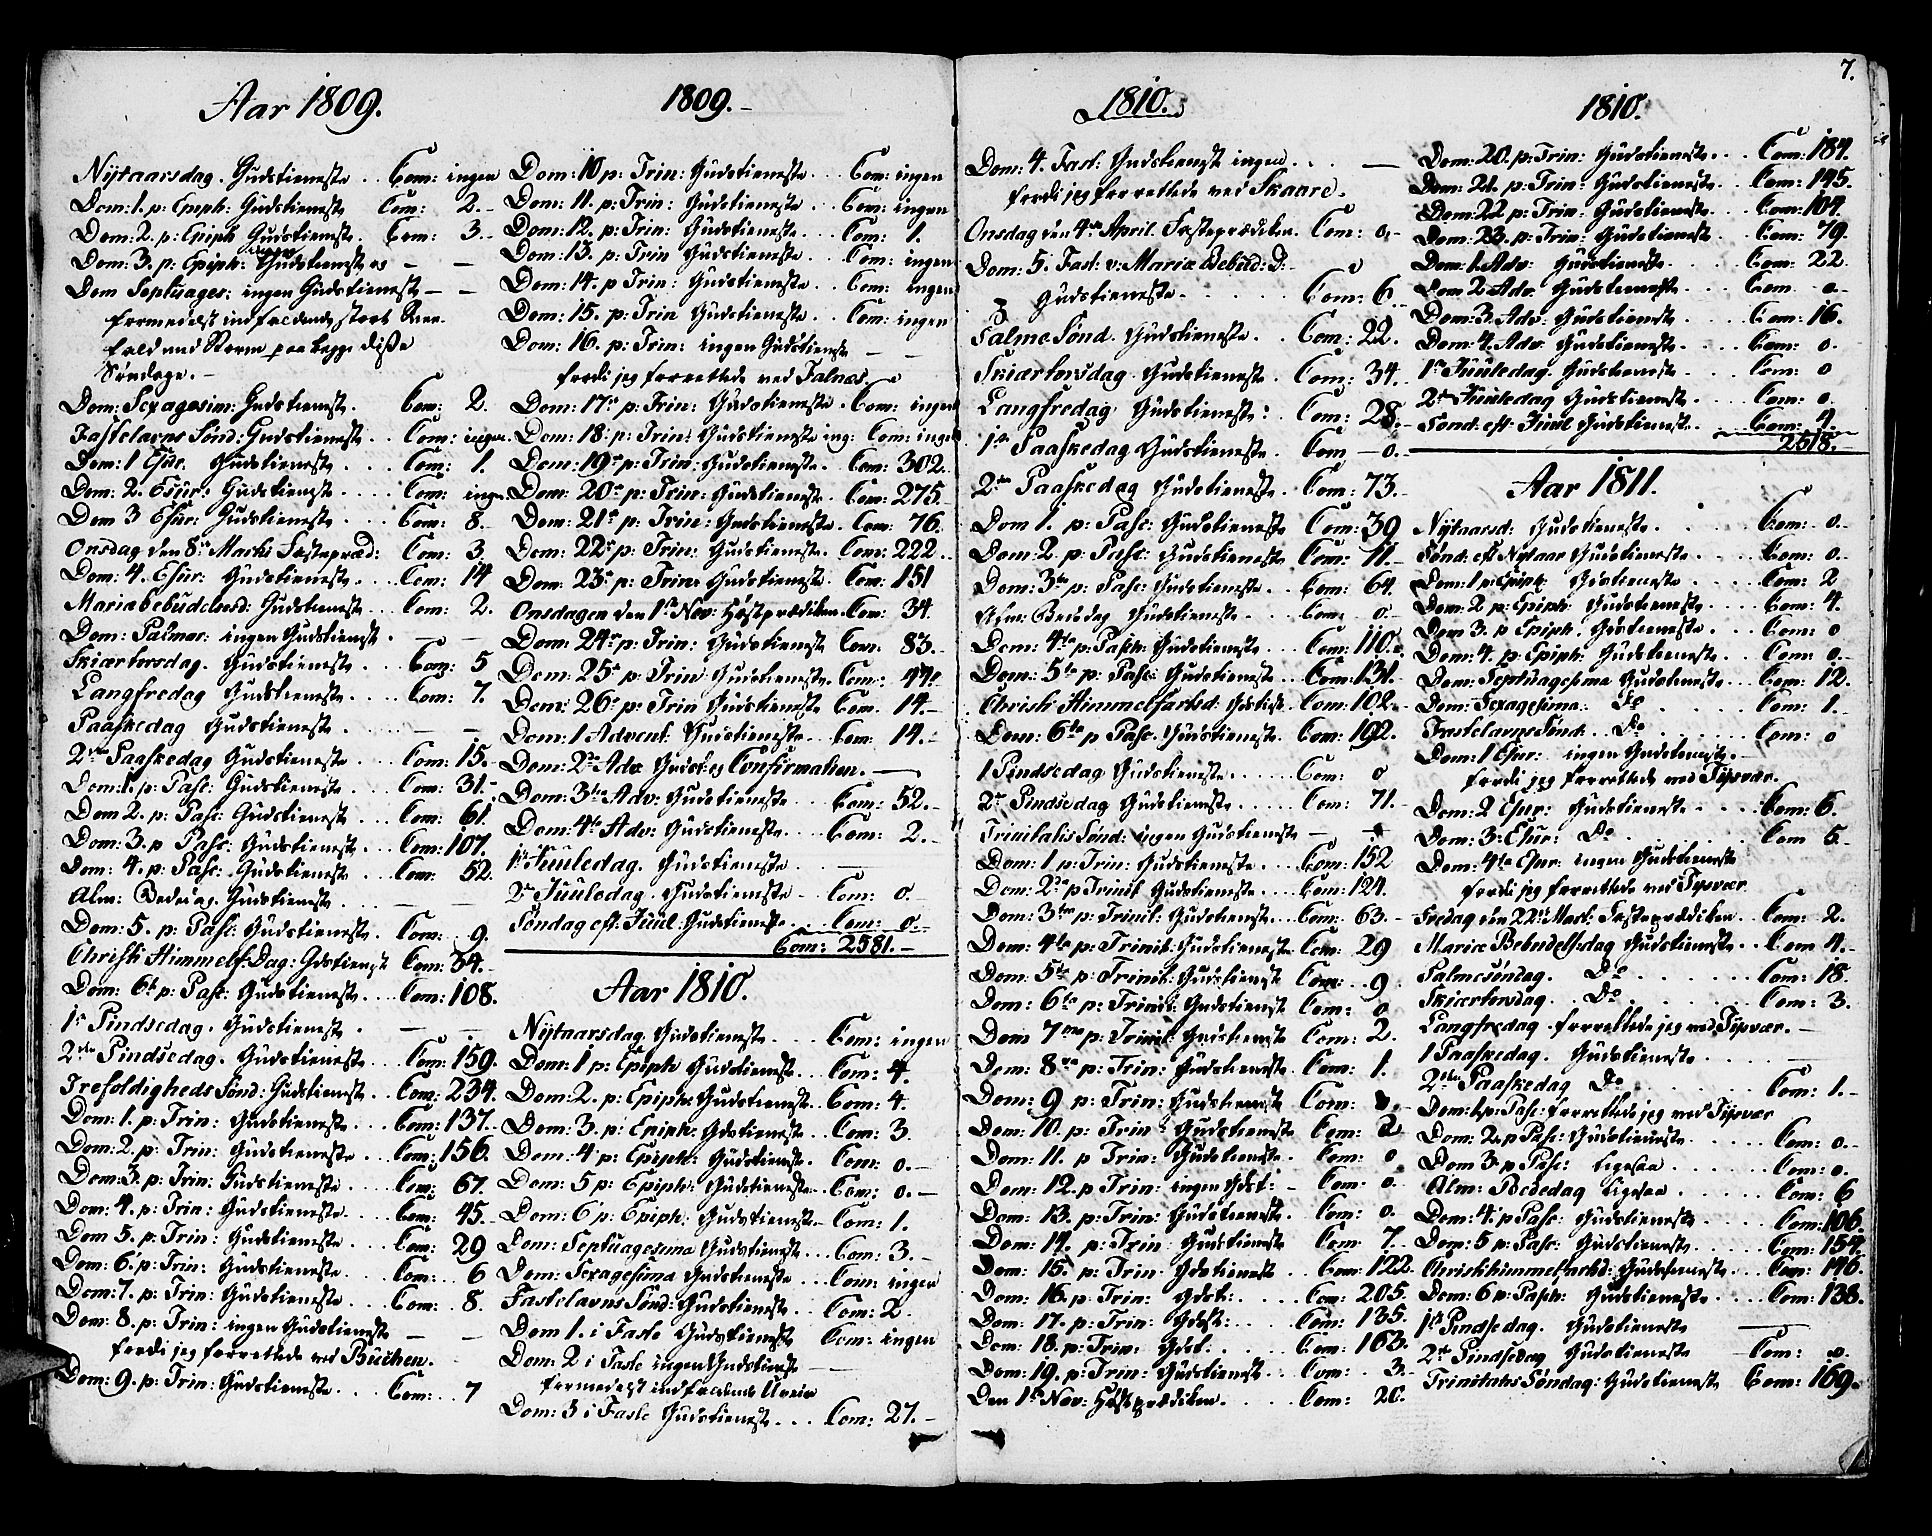 Aar 1809.
Nytaarsdag. Gudstieneste .. Com: ingen
Dom: 1. p: Epiph: Gudstieneste Com: 2.-
Dom: 2. p: Epiph Gudstieneste. Com: 3.-
Dom: 3. p: Epiph: Gudstienest og — —
Dom Septuages: ingen Gudstienest — —
formedelst indfaldende stort Snee-
fald und Storm paa begge disse
Søndage. -
Dom: Sexagesim: Gudstienest. Com: 2.
Fastelavns Sønd: Gudstieneste .. Com: ingen.
Dom: 1 Esur. Gudstieneste .... Com: 1.
Dom: 2. Esur: Gudstieneste .... Com: ingen
Dom 3 Esur: Gudstieneste .... Com: 8.-
Onsdag den 8de Marti Fastepræd: Com: 3
Dom: 4. Esur: Gudstieneste. ... Com: 14
Mariæbebudelsesd: Gudstieneste .. Com: 2.
Dom: Palmar: ingen Gudstienest. — —
Skiærtorsdag. Gudstieneste ... Com: 5
Langfredag Gudstieneste .... Com: 7.
Paaskedag Gudstieneste .. — —
2den Paaskedag Gudstieneste .. Com: 15.-
Dom: 1. p: Pasc: Gudstieneste ... Com: 31.-
Dom 2. p: Pasc: Gudstieneste ... Com: 61.
Dom: 3. p Pasc: Gudstieneste .. Com: 107.
Dom: 4. p: Pasc: Gudstieneste ... Com: 52.
Alm: Bededag. Gudstieneste ... — —
Dom: 5. p: Pasc: Gudstieneste. Com: 9.
Christi Himmelf: Dag: Gdstienest Com: 34.-
Dom: 6te p: Pasc: Gudstieneste... Com: 108.
1ste Pindsedag. Gudstieneste . — —
2den Pindsedag. Gudstieneste ... Com: 159.
Trefoldigheds Sønd: Gudstieneste .. Com: 234.
Dom: 1. p: Trin: Gudstieneste ... Com: 137.
Dom: 2. p: Trin: Gudstieneste .. Com: 156.
Dom: 3. p: Trin: Gudstieneste ... Com: 67.
Dom: 4. p: Trin: Gudstieneste ... Com: 45.-
Dom 5. p: Trin: Gudstieneste ... Com: 29
Dom: 6. p: Trin: Gudstieneste. ... Com: 6
Dom: 7. p: Trin: Gudstieneste. ... Com: 8.
Dom: 8. p: Trin: ingen Gudstieneste — —
fordi jeg forrettede ved Buchen.
Dom: 9. p: Trin: Gudstieneste. .. Com: 7
1809.-
Dom: 10 p: Trin: Gudstieneste.. Com: ingen
Dom: 11. p: Trin: Gudstieneste ... Com: ingen
Dom: 12. p: Trin: Gudstieneste ... Com: 1.
Dom: 13. p: Trin Gudstieneste ... Com: ingen
Dom: 14. p Trin: Gudstieneste ... Com: ingen
Dom: 15. p: Trin Gudstieneste .. Com: ingen
Dom: 16. p: Trin: ingen Gudstieneste — —
fordi jeg forrettede ved Falnæs.
Dom: 17de p: Trin: Gudstieneste. Com: ingen
Dom: 18 p: Trin: Gudstieneste ing: Com: ingen
Dom: 19de p: Trin: Gudstieneste. Com: 302.
Dom: 20de p: Trin: Gudstieneste. Com: 275.
Dom: 21de p: Trin: Gudstieneste. Com: 76.
Dom: 22de p: Trin: Gudstieneste. Com: 222.
Dom: 23de p: Trin: Gudstieneste. Com: 151
Onsdagen den 1ste Nov: Høstprædiken. Com: 34.
Dom: 24de p: Trin: Gudstieneste Com: 83.-
Dom: 25de p: Trin Gudstieneste. Com: 44.
Dom: 26de p: Trin Gudstieneste Com: 14.-
Dom: 1 Advent Gudstieneste .. Com: 14.-
Dom: 2den Adv Gudst: og Confirmation. —
Dom: 3die Adv: Gudstieneste ... Com: 52.-
Dom: 4de Adv: Gudstieneste ... Com: 2.-
1ste Juuledag. Gudstieneste —
2den Juuledag. Gudstieneste - Com: 0.-
Søndag eft: Juul: Gudstieneste. Com: 0.-
Com: 2581.-
Aar 1810.
Nytaarsdag. Gudstieneste .. Com: ingen
Dom: 1 p: Epiph Gudstieneste. Com: 4.
Dom: 2. p: Epiph: Gudstieneste. Com: 4.
Dom: 3. p: Epiph: Gdstieneste .. Com: 3.
Dom: 4 p: Epiph: Gudstieneste.. Com: 0.-
Dom: 5 p: Epiph: Gudstieneste. Com: 0.-
Dom: 6 p: Epiph: Gudstieneste. Com: 1.
Dom: Septuagesima Gudstieneste .. Com: 3.-
Dom: Sexagesima Gudstieneste .. Com: ingen
Fastelavns Sønd: Gudstieneste .. Com: 2
Dom 1. i Faste Gudstieneste Com: ingen
Dom: 2 i Faste ingen Gudstienest —
formedelst indfaldende Uveir
Dom: 3 i Faste Gudstieneste ... Com: 27.-
1810.
7.
Dom: 4. Fast: Gudstienest ingen ... —
fordi jeg forrettede ved Skaare.
Onsdag den 4de April. Fasteprædiken. Com: 0.-
Dom: 5. Fast: v: Mariæ Bebud: D:
Gudstieneste ..... Com: 6.
Palme Sønd. Gudstieneste .. Com: 22.-
Skiærtorsdag. Gudstieneste . Com: 34.-
Langfredag Gudstieneste: . Com: 28.
1ste Paaskedag Gudstieneste. Com - 0.-
2den Paaskedag Gudstieneste. Com: 73.-
Dom 1. p: Pasc: Gudstieneste Com: 39
Dom: 2 p: Pasc: Gudstieneste Com: 11.-
Dom: 3die p: Pasc Gudstieneste. Com: 64.
Alm: Beddag Gudstieneste ... Com. 0.-
Dom: 4de p: Pasch: Gudstieneste.. Com: 110.
Dom: 5te p: Pasc: Gudstieneste.. Com: 131.-
Christi Himmelfartsd: Gdstist. Com: 102.-
Dom: 6te p Pasc. Gudstieneste Com: 192.
1 Pindsedag Gudstieneste ..... Com: 0
2den Pindsedag Gudstieneste ..... Com: 71.-
Trinitatis Sønd: ingen Gudstieneste — —
Dom: 1 p: Trin: Gudstieneste ... Com: 152
Dom: 2den p Trinit: Gudstieneste ... Com: 124.
Dom: 3die p: Trinit: Gudstieneste... Com: 63.-
Dom: 4de p: Trinit: Gudstieneste .. Com: 29
Dom: 5te p: Trinit: Gudstienest Com: . 9.
Dom: 6te p: Trinit: Gudstienest Com: 0
Dom 7me p: Trinit: Gudstieneste Com: 2.
Dom: 8de p: Trin: Gudstieneste. Com: 1.
Dom: 9 p: Trin: Gudstieneste Com: 0.-
Dom: 10. p: Trin: Gudstieneste Com: 2
Dom: 11. p Trin: Gudstieneste. Com: 0
Dom: 12. p Trin: ingen Gdst: - Com: 0.
Dom: 13. p: Trin: Gudstieneste. Com: 0.
Dom: 14. p: Trin: Gudstieneste Com 7.-
Dom: 15. p: Trin Gdstieneste .. Com: 122.
Dom: 16. p: Trin: Gdst: ..... Com: 205.
Dom: 17. p: Trin: Gdst: .... Com: 135.
Dom: 18. p: Trin: Gdst. .... Com: 163.
Dom: 19. p: Trin: Gudstienest .. Com: . 3.-
Den 1ste Nov: Høstprædiken. .... Com: 20.
1810.
Dom: 20. p: Trin: Gudstieneste. .. Com: 184.
Dom: 21. p: Trin: Gudstieneste... Com: 145.
Dom: 22 p: Trin: Gudstieneste ... Com: 104.
Dom: 23. p: Trin: Gudstieneste .. Com: 79.
Dom: 1. Adv: Gudstieneste. .... Com: 22.
Dom 2 Adv: Gudstieneste .... Com 0.-
Dom: 3 Adv: Gudstieneste .... Com: 16.
Dom: 4. Adv: Gudstieneste .... Com: 0.
1ste Juuledag. Gudstieneste .... Com: 0
2den Juuledag Gudstieneste .... Com: 0.
Sønd: eft: Juul Gudstienest.. Com: 4.
2518.-
Aar 1811.
Nytaarsd: Gudstieneste. ... Com: 0.-
Sønd: eft Nytaar Gudstieneste .... Com: 0.
Dom: 1 p: Epiph: Gdstieneste ..... Com: 2
Dom: 2 p: Epiph: Gudstieneste .... Com: 4.
Dom 3. p Epiph: Gdstieneste .... Com: 0
Dom: 4. p: Epiph: Gudstieneste ... Com: 0.-
Dom: Septuagesima Gudstieneste... Com: 12.
Dom: Sexagesima: Do ..... Com: 1.-
Fastelavns Sønd: .. Do ..... Com: 0
Dom: 1 Esur: ingen Gudstieneste. -
fordi jeg forrettede ved Tysvær.
Dom: 2 Esur: Gudstieneste .... Com: 6.
Dom: 3: Esur: Do. ..... Com 5.-
Dom: 4de Esur: ingen Gudstieneste
fordi jeg forrettede ved Tysvær
Fredag den 22de Mart: Fasteprædiken.. Com: 2.
Mariæ Bebudelsdag Gudstieneste.. Com 4.-
Palmesøndag. Do ...... Com: 18.
Skiærtorsdag. .. Do ...... Com: 3.
Langfredag - forrettede jeg ved Tysvær. -
1 Paaskedag. Gudstieneste .... —
2den Paaskedag Do ...... Com: 1.-
Dom: 1. p: Pasc: forrettede jeg ved Tysvær
Dom: 2. p Pasc: Gudstieneste ..... Com: 0.-
Dom 3 p Pasc: ligesaa ...... Com: 0.
Alm: Bededag ligesaa ..... Com: 6
Dom: 4. p Pasc: Gudstieneste .... Com: 106.
Dom: 5 p: Pasc: Gudstieneste ..... Com: 154.
Christi himmelfartsd: Gudstieneste... Com: 146.
Dom: 6 p: Pasch: Gudstieneste ... Com: 138.
1ste Pindsedag. Gudstieneste —
2den Pindsedag Gudstieneste — Com: 0.
Trinitatis Søndag: Gudstieneste Com: 169.